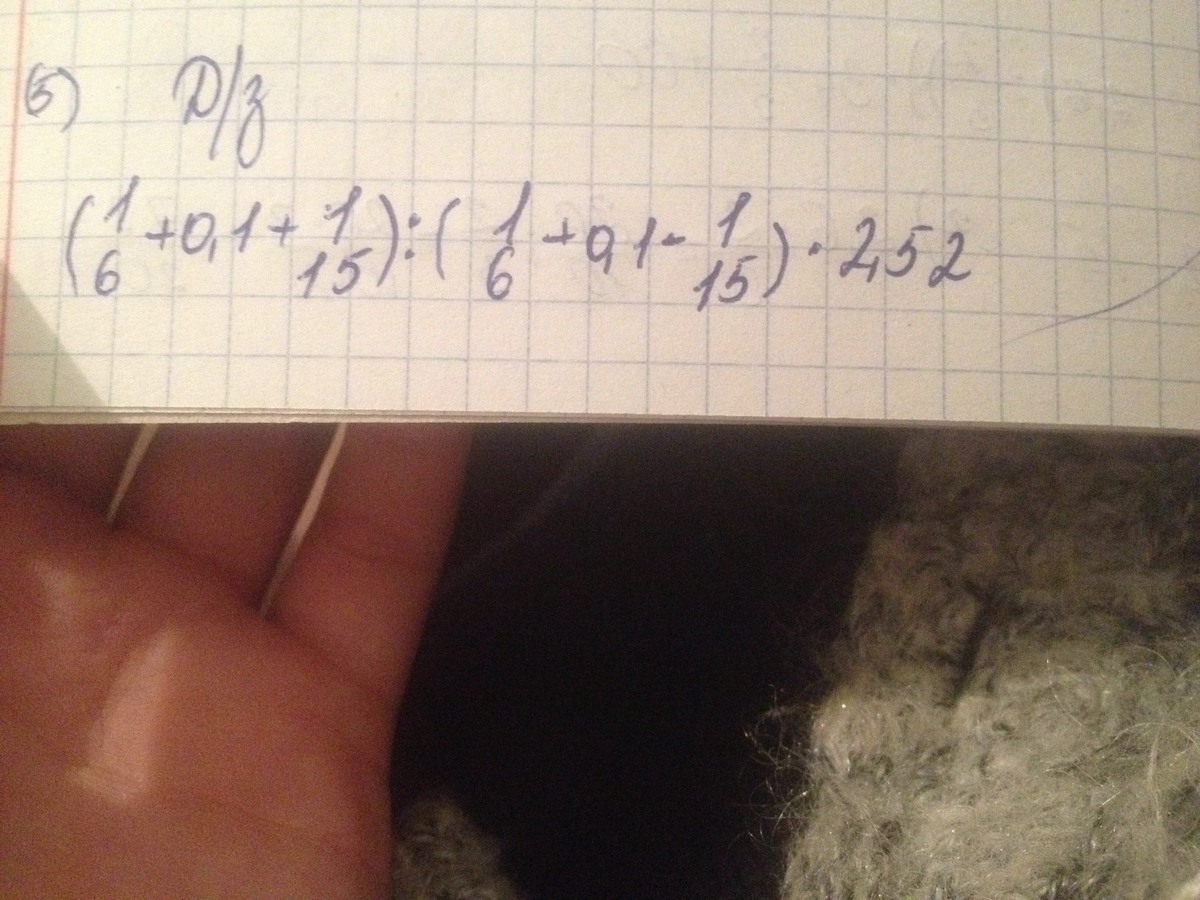 5) Д/з
(1/6 + 0,1 + 1/15) : (1/6 + 0,1 - 1/15) · 2,52